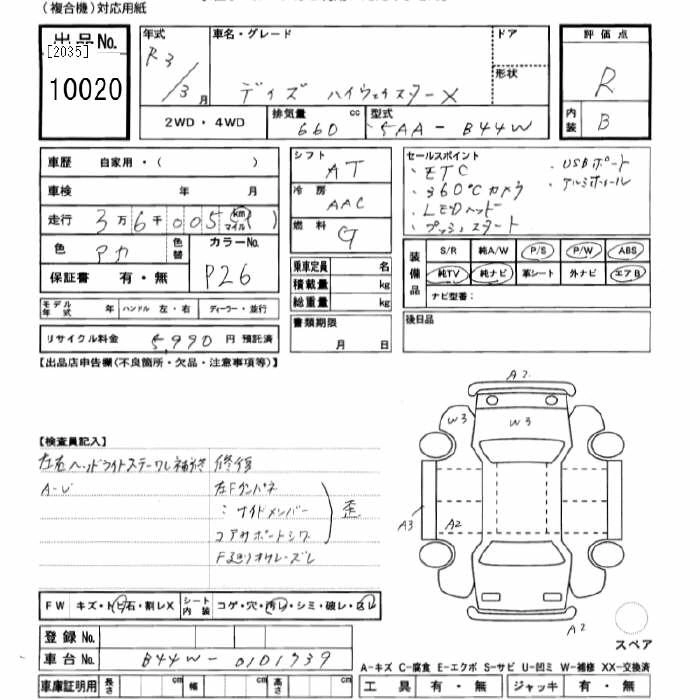 (複合機)対応用紙
出品No.
[2035]
10020
年式 R3/3月
車名・グレード
デイズ ハイウェイスターX
ドア
形状
評価点
R
内装 B
2WD・4WD
排気量 660 cc
型式 5AA-B44W
車歴 自家用・( )
車検 年 月
走行 3万6千005 km マイル ( )
色 アカ 色替
カラーNo. P26
保証書 有・無
モデル年式 年 ハンドル 左・右 ディーラー・並行
リサイクル料金 5,990円 預託済
シフト AT
冷房 AAC
燃料 G
乗車定員 名
積載量 kg
総重量 kg
書類期限
月 日
セールスポイント
・ETC
・360°カメラ
・LEDヘッド
・プッシュスタート
・USBポート
・アルミホイール
装備品
S/R 純A/W P/S P/W ABS
純TV 純ナビ 革シート 外ナビ エアB
ナビ型番:
後日品
【出品店申告欄(不良箇所・欠品・注意事項等)】
【検査員記入】
左右ヘッドライトステーワレ補修
A-U
修復
左Fクロスメンバー
〃サイドメンバー
コアサポートシワ
歪
A2
W3
W3
A3
A2
A2
スペア
FW キズ・トビ石・割レX
シート内装 コゲ・穴・汚レ・シミ・破レ・スレ
登録No.
車台No. B44W-0101939
車庫証明用 長さ cm 幅 cm 高さ cm
A-キズ C-腐食 E-エクボ S-サビ U-凹ミ W-補修 XX-交換済
工具 有・無 ジャッキ 有・無